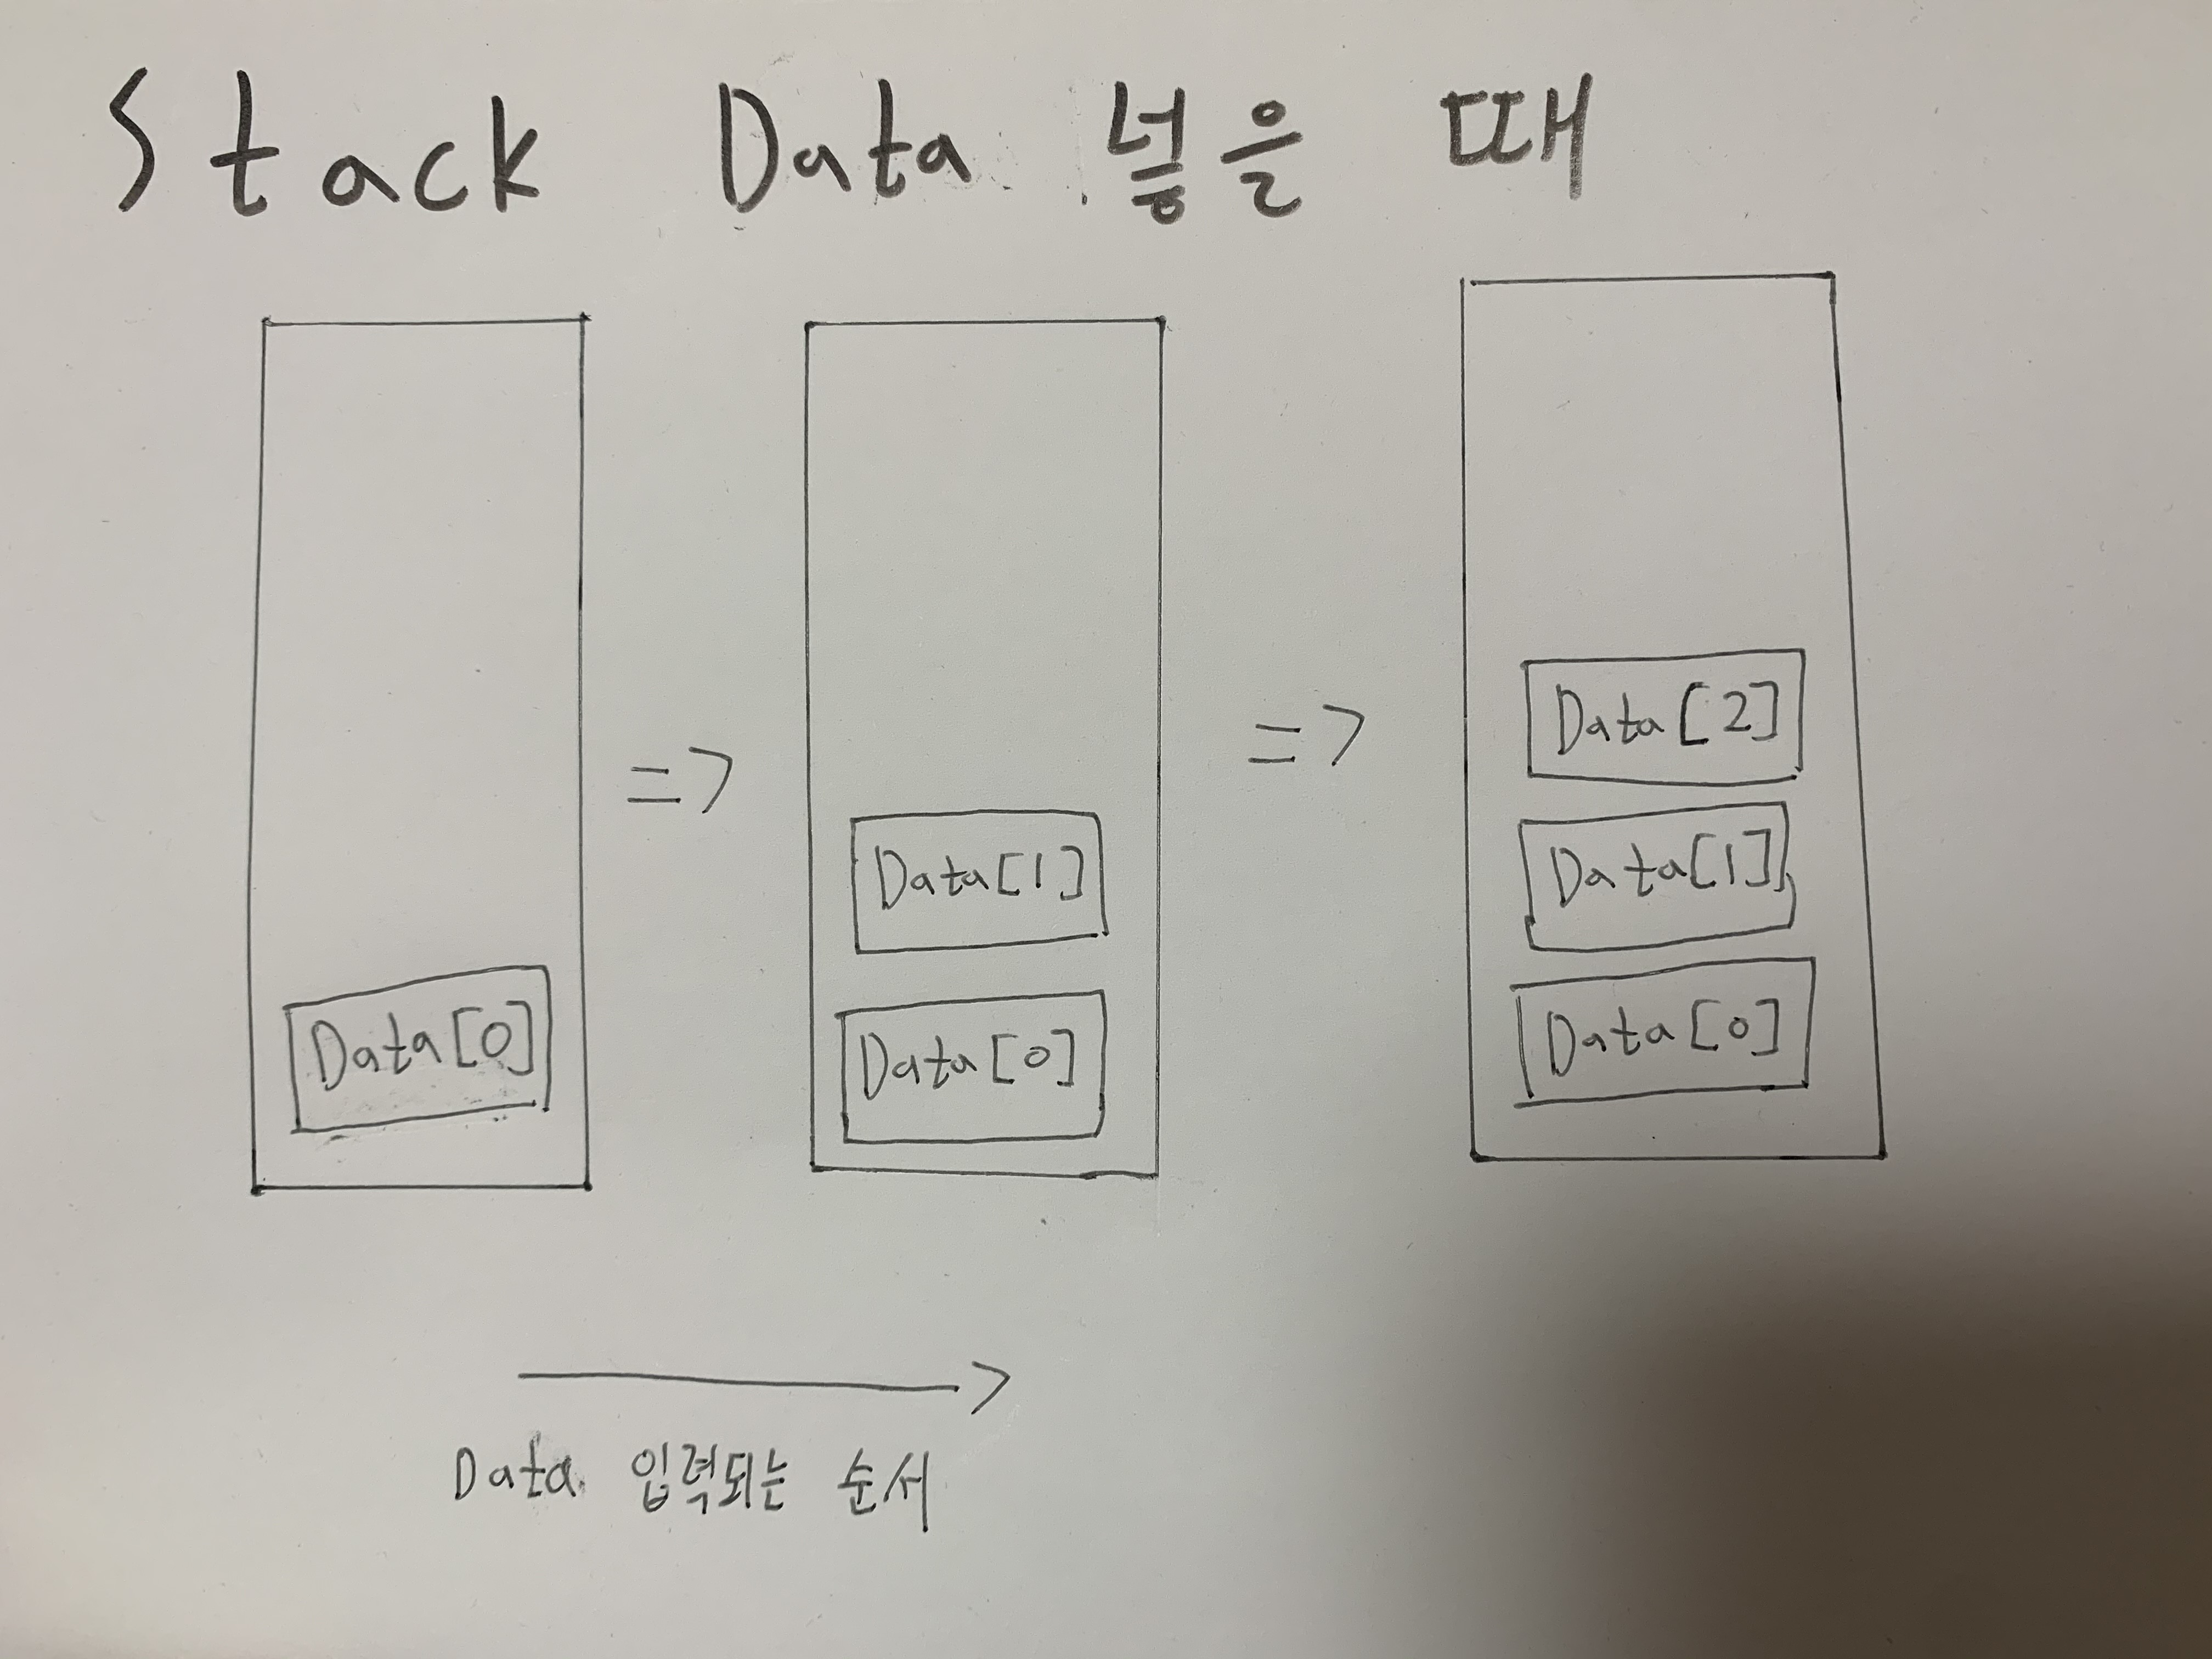 Stack Data 넣을 때
Data[0]
=>
Data[1]
Data[0]
=>
Data[2]
Data[1]
Data[0]
Data 입력되는 순서